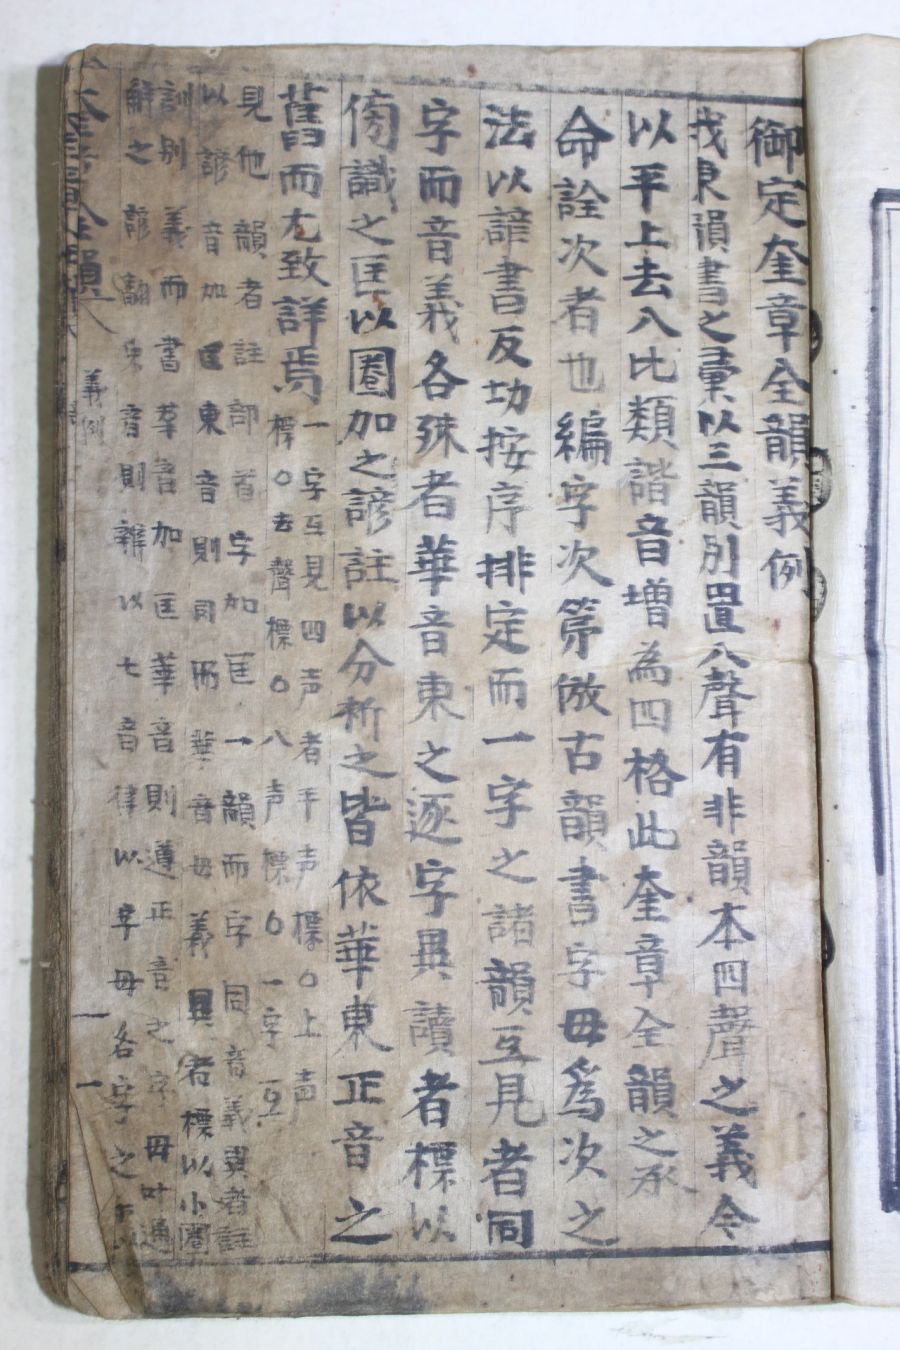 御定奎章全韻義例
我東韻書之彙以三韻別置入聲有非韻本四聲之義今
以平上去入比類諧音增為四格此奎章全韻之承
命詮次者也編字次第倣古韻書字母爲次之
法以諺書反切按序排定而一字之諸韻互見者同
字而音義各殊者華音東之逐字異讀者標以
傍識之匡以圈加之諺註以分析之皆依華東正音之
舊而尤致詳焉
一字互見四声者平声標〇上声
標〇去聲標〇入声標〇一字互
見他韻者註部首字加匡一韻而字同音義異者註
以諺音加匡東音則同而華音母義異者標以小圈
訓別義而書華音加匡華音則遵正音之字母叶通
解之諺書則雜以七音律以字母各字之
奎章全韻 義例 一